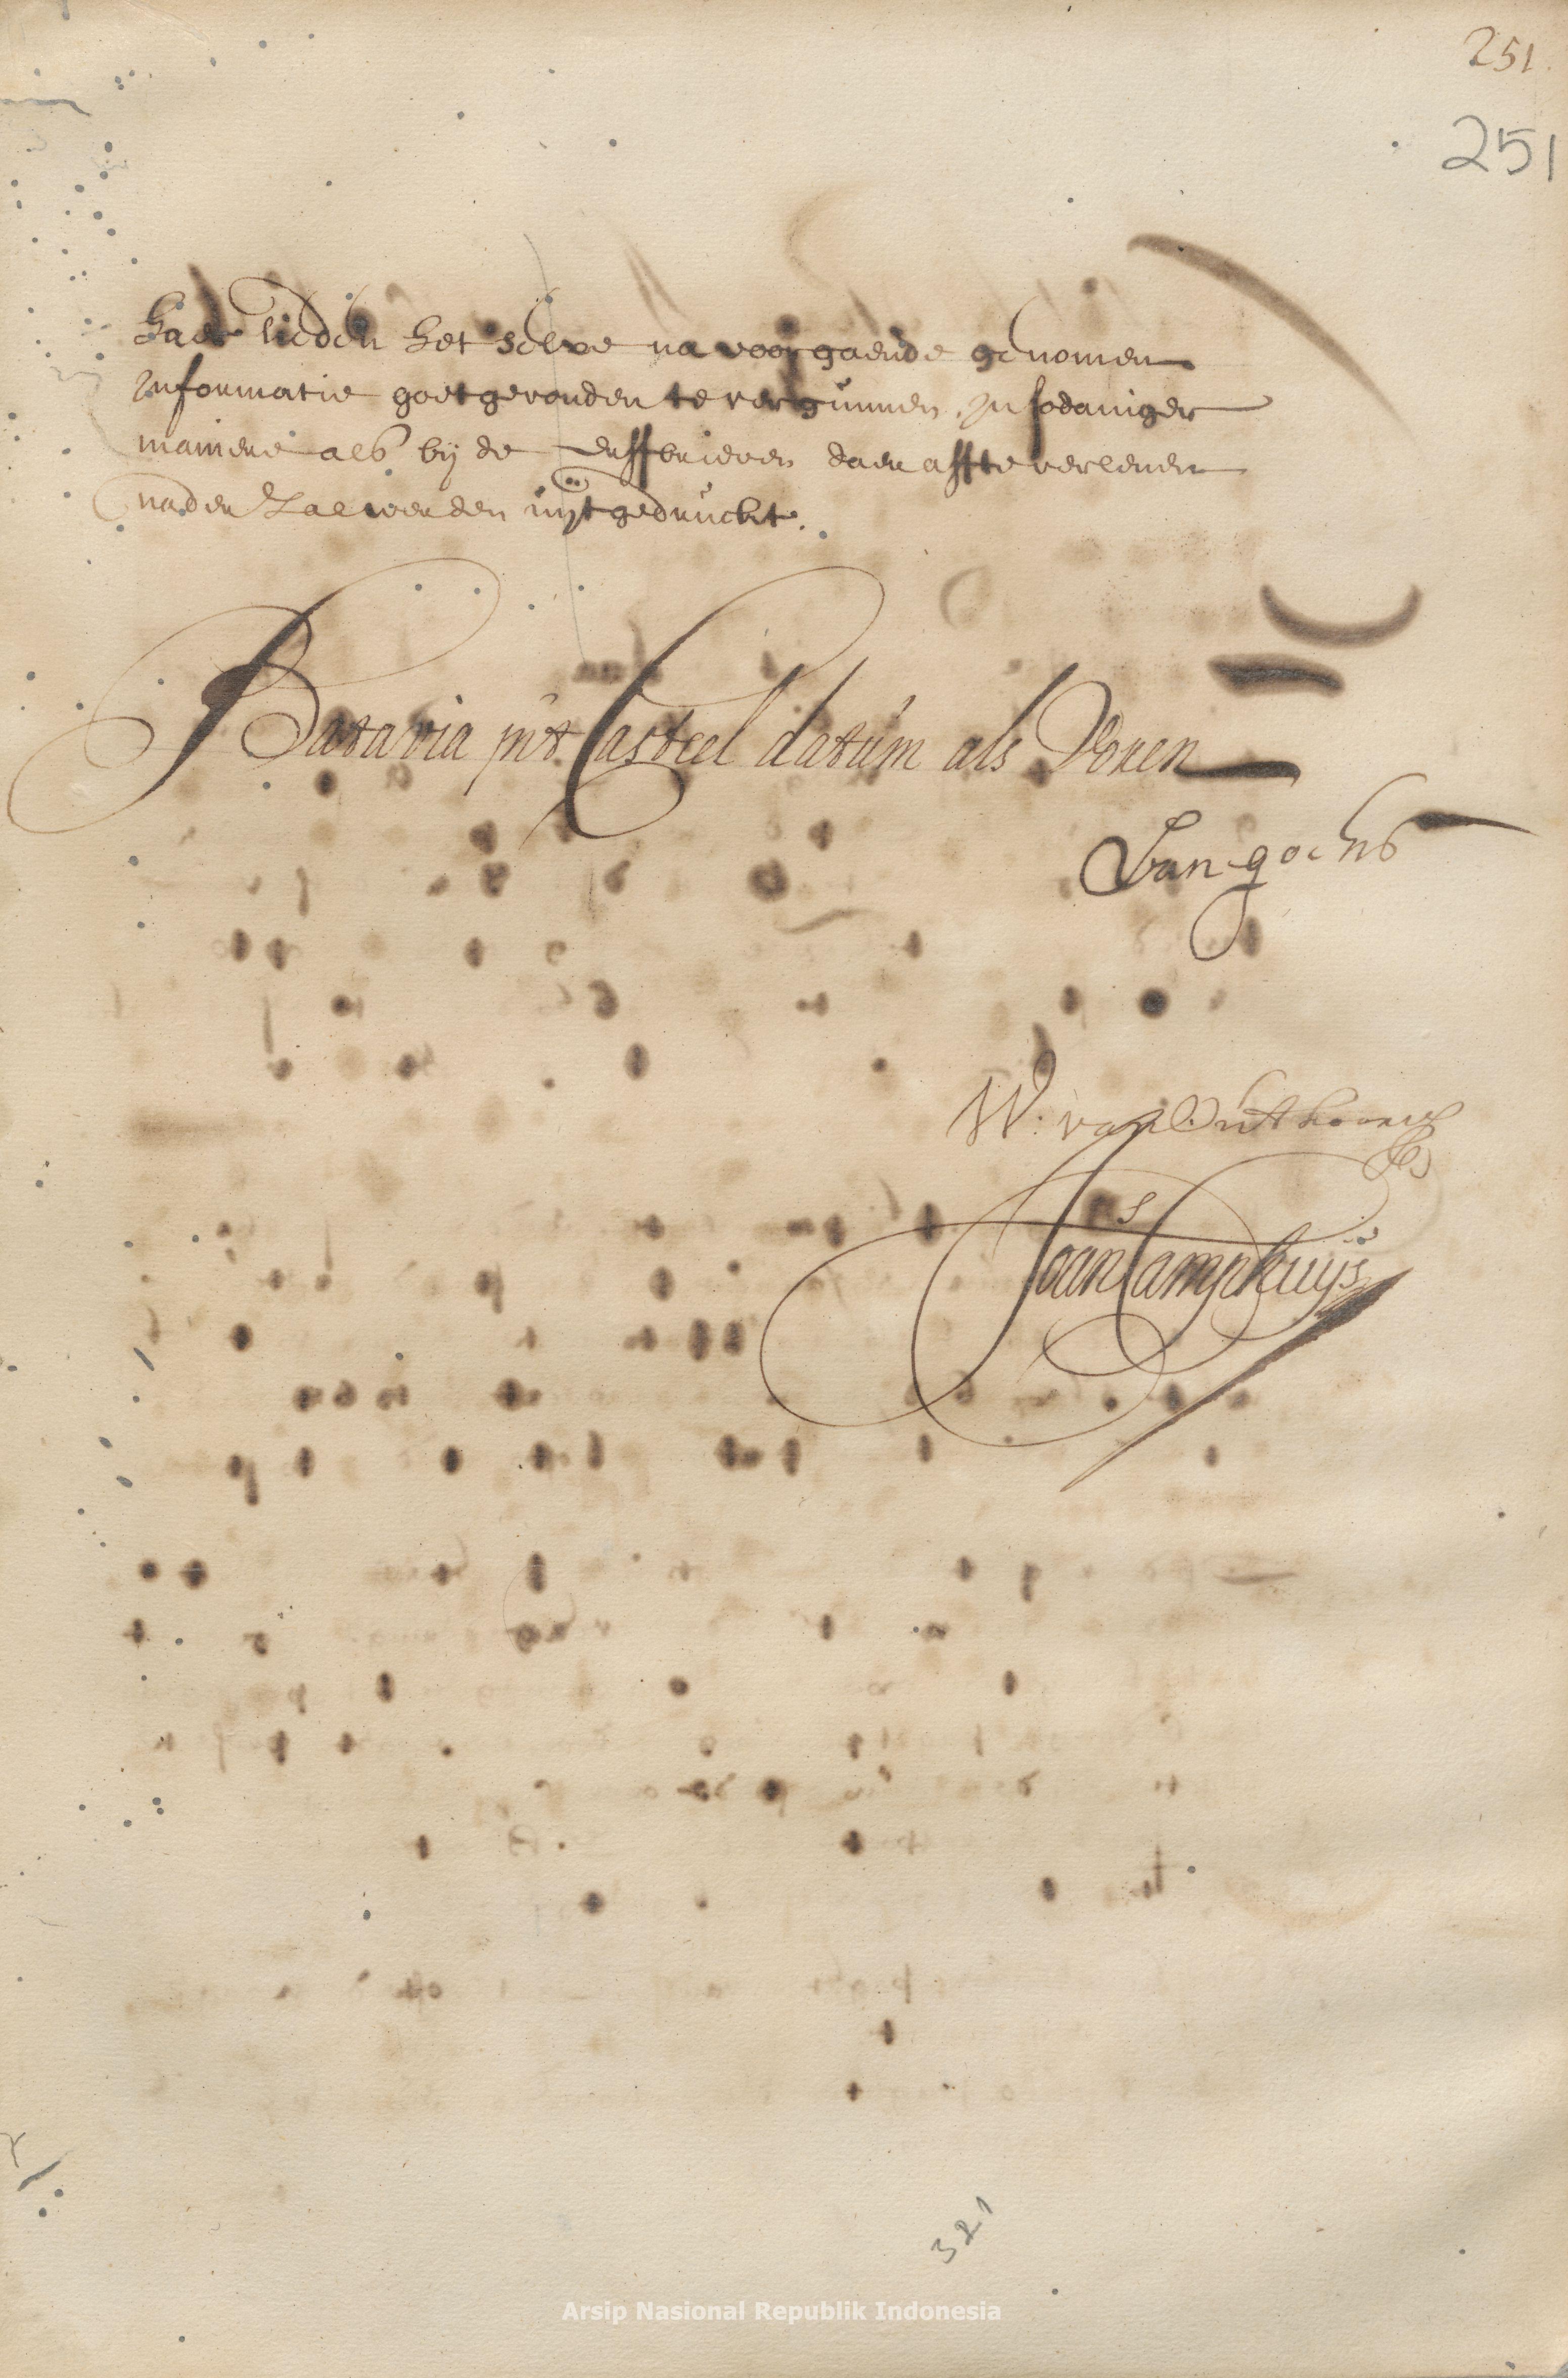 251.
251
haer lieden het selve na voorgaende genomen
Informatie goetgevonden te vergunnen, in sodaniger
maniere als bij de Erffbrieven daer aff te verlenen
nader zal werden uijtgedruckt.
Batavia int Casteel datum als Voren
Van goens
W: van Outhoorn
Joan Camphuijs
321
Arsip Nasional Republik Indonesia